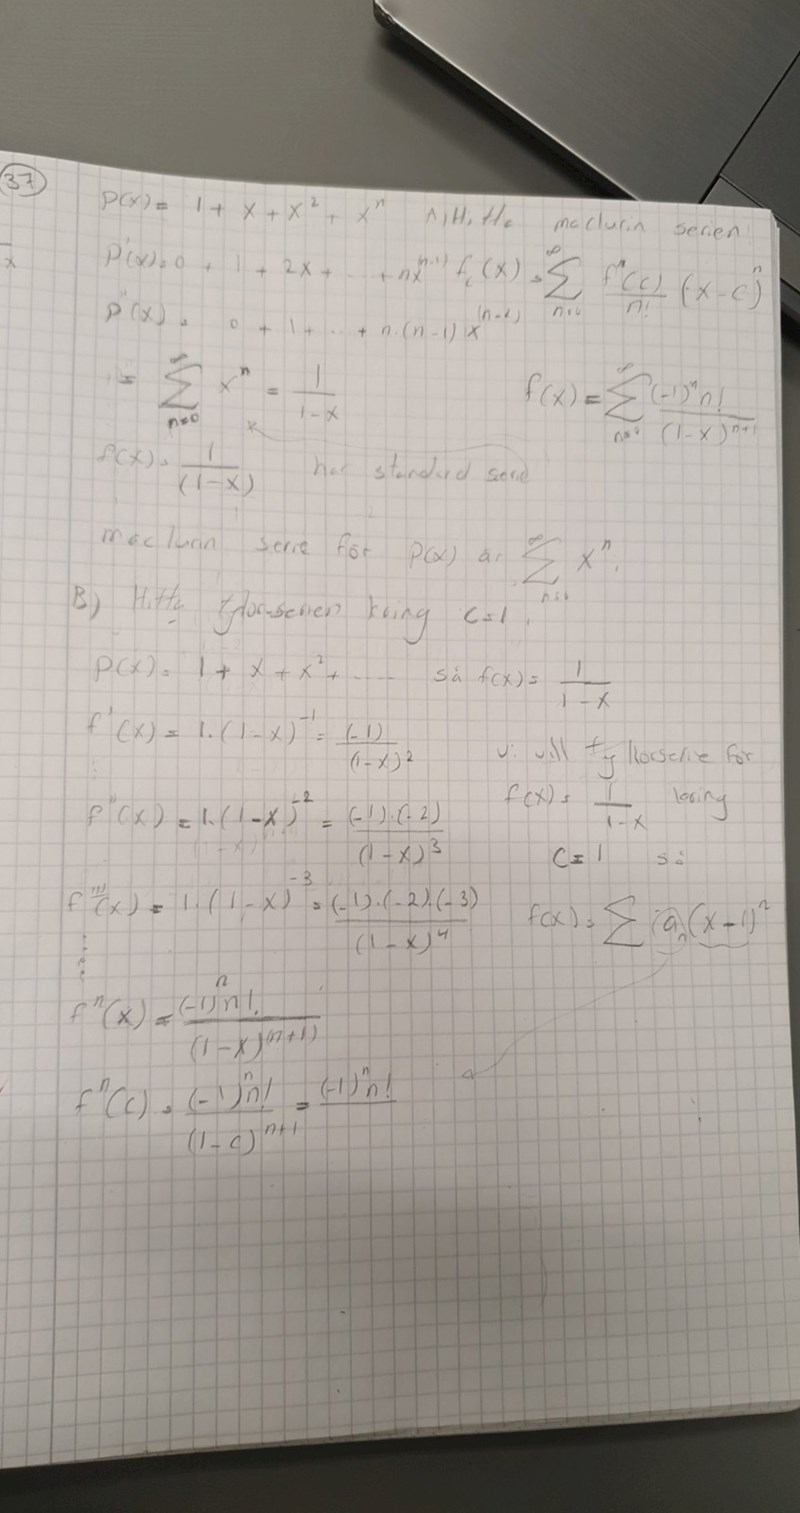 37
P(x) = 1 + x + x² + xⁿ A) Hitta maclurin serien
x
P'(x) = 0 + 1 + 2x + ... + nx⁽ⁿ⁻¹⁾ f_c(x) = ∑_{n=0}^{∞} fⁿ(c)/n! (x-c)ⁿ
P''(x) = 0 + 1 + ... + n·(n-1)x
= ∑_{n=0}^{∞} xⁿ = 1/(1-x) f(x) = ∑^{∞} (-1)ⁿn!/(1-x)ⁿ⁺¹
f(x) = 1/(1-x) har standard serie
maclurin serie för P(x) är ∑^{∞} xⁿ.
B) Hitta kring c=1.
P(x) = 1 + x + x² + ..... så f(x) = 1/(1-x)
f'(x) = 1·(1-x)⁻¹ = (-1)/(1-x)² vi vill för
f''(x) = 1·(1-x)⁻² = (-1)·(-2)/(1-x)³ f(x) = 1/(1-x) kring
c=1 så
f'''(x) = 1·(1-x)⁻³ = (-1)·(-2)·(-3)/(1-x)⁴ f(x) = ∑ (aₙ(x-1)ⁿ
fⁿ(x) = (-1)ⁿn!/(1-x)⁽ⁿ⁺¹⁾
fⁿ(c) = (-1)ⁿn!/(1-c)ⁿ⁺¹ = (-1)ⁿn!